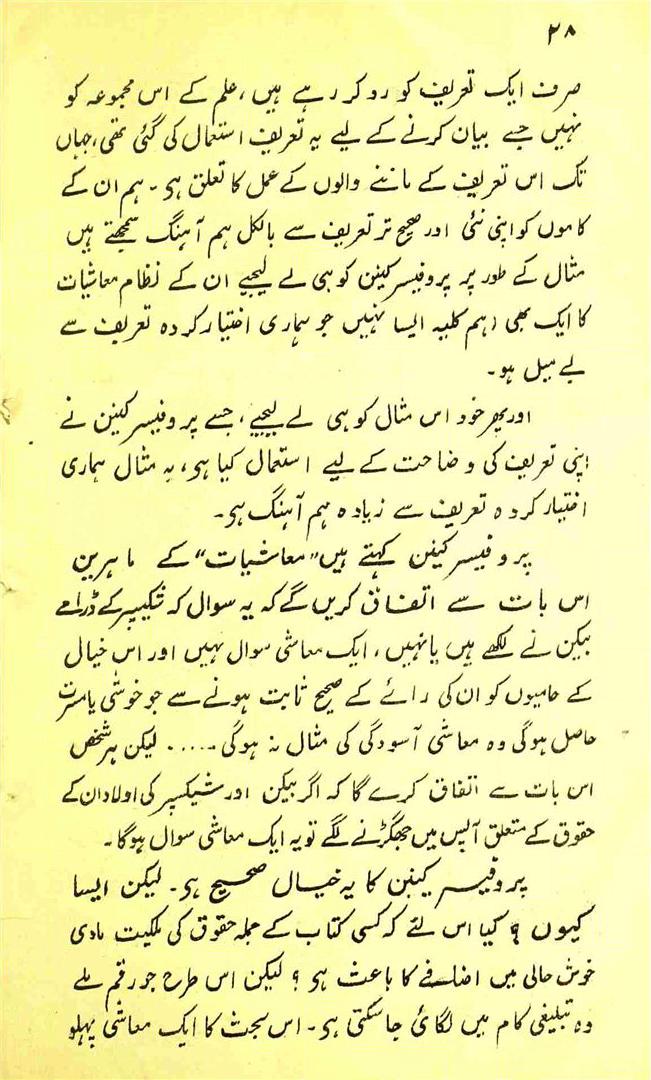 ۲۸
صرف ایک تعریف کو رد کر رہے ہیں، علم کے اس مجموعہ کو
نہیں جسے بیان کرنے کے لیے یہ تعریف استعمال کی گئی تھی، جہاں
تک اس تعریف کے ماننے والوں کے عمل کا تعلق ہی ۔ ہم ان کے
کاموں کو اپنی نئی اور صحیح تر تعریف سے بالکل ہم آہنگ سمجھتے ہیں
مثال کے طور پر پروفیسر کینن کو ہی لے لیجیے ان کے نظام معاشیات
کا ایک بھی اہم کلیہ ایسا نہیں جو ہماری اختیار کردہ تعریف سے
بے میل ہو۔
اور پھر خود اس مثال کو ہی لے لیجیے، جسے پروفیسر کینن نے
اپنی تعریف کی وضاحت کے لیے استعمال کیا ہی، یہ مثال ہماری
اختیار کردہ تعریف سے زیادہ ہم آہنگ ہی۔
پروفیسر کینن کہتے ہیں "معاشیات" کے ماہرین
اس بات سے اتفاق کریں گے کہ یہ سوال کہ شیکسپیر کے ڈرامے
بیکن نے لکھے ہیں یا نہیں، ایک معاشی سوال نہیں اور اس خیال
کے حامیوں کو ان کی رائے کے صحیح ثابت ہونے سے جو خوشی یا مسرت
حاصل ہوگی وہ معاشی آسودگی کی مثال نہ ہوگی ..... لیکن ہر شخص
اس بات سے اتفاق کرے گا کہ اگر بیکن اور شیکسپیر کی اولاد ان کے
حقوق کے متعلق آپس میں جھگڑنے لگے تو یہ ایک معاشی سوال ہوگا۔
پروفیسر کینن کا یہ خیال صحیح ہی۔ لیکن ایسا
کیوں ؟ کیا اس لئے کہ کسی کتاب کے جملہ حقوق کی ملکیت مادی
خوش حالی میں اضافے کا باعث ہی ؟ لیکن اس طرح جو رقم ملے
وہ تبلیغی کام میں لگائی جا سکتی ہی۔ اس بحث کا ایک معاشی پہلو